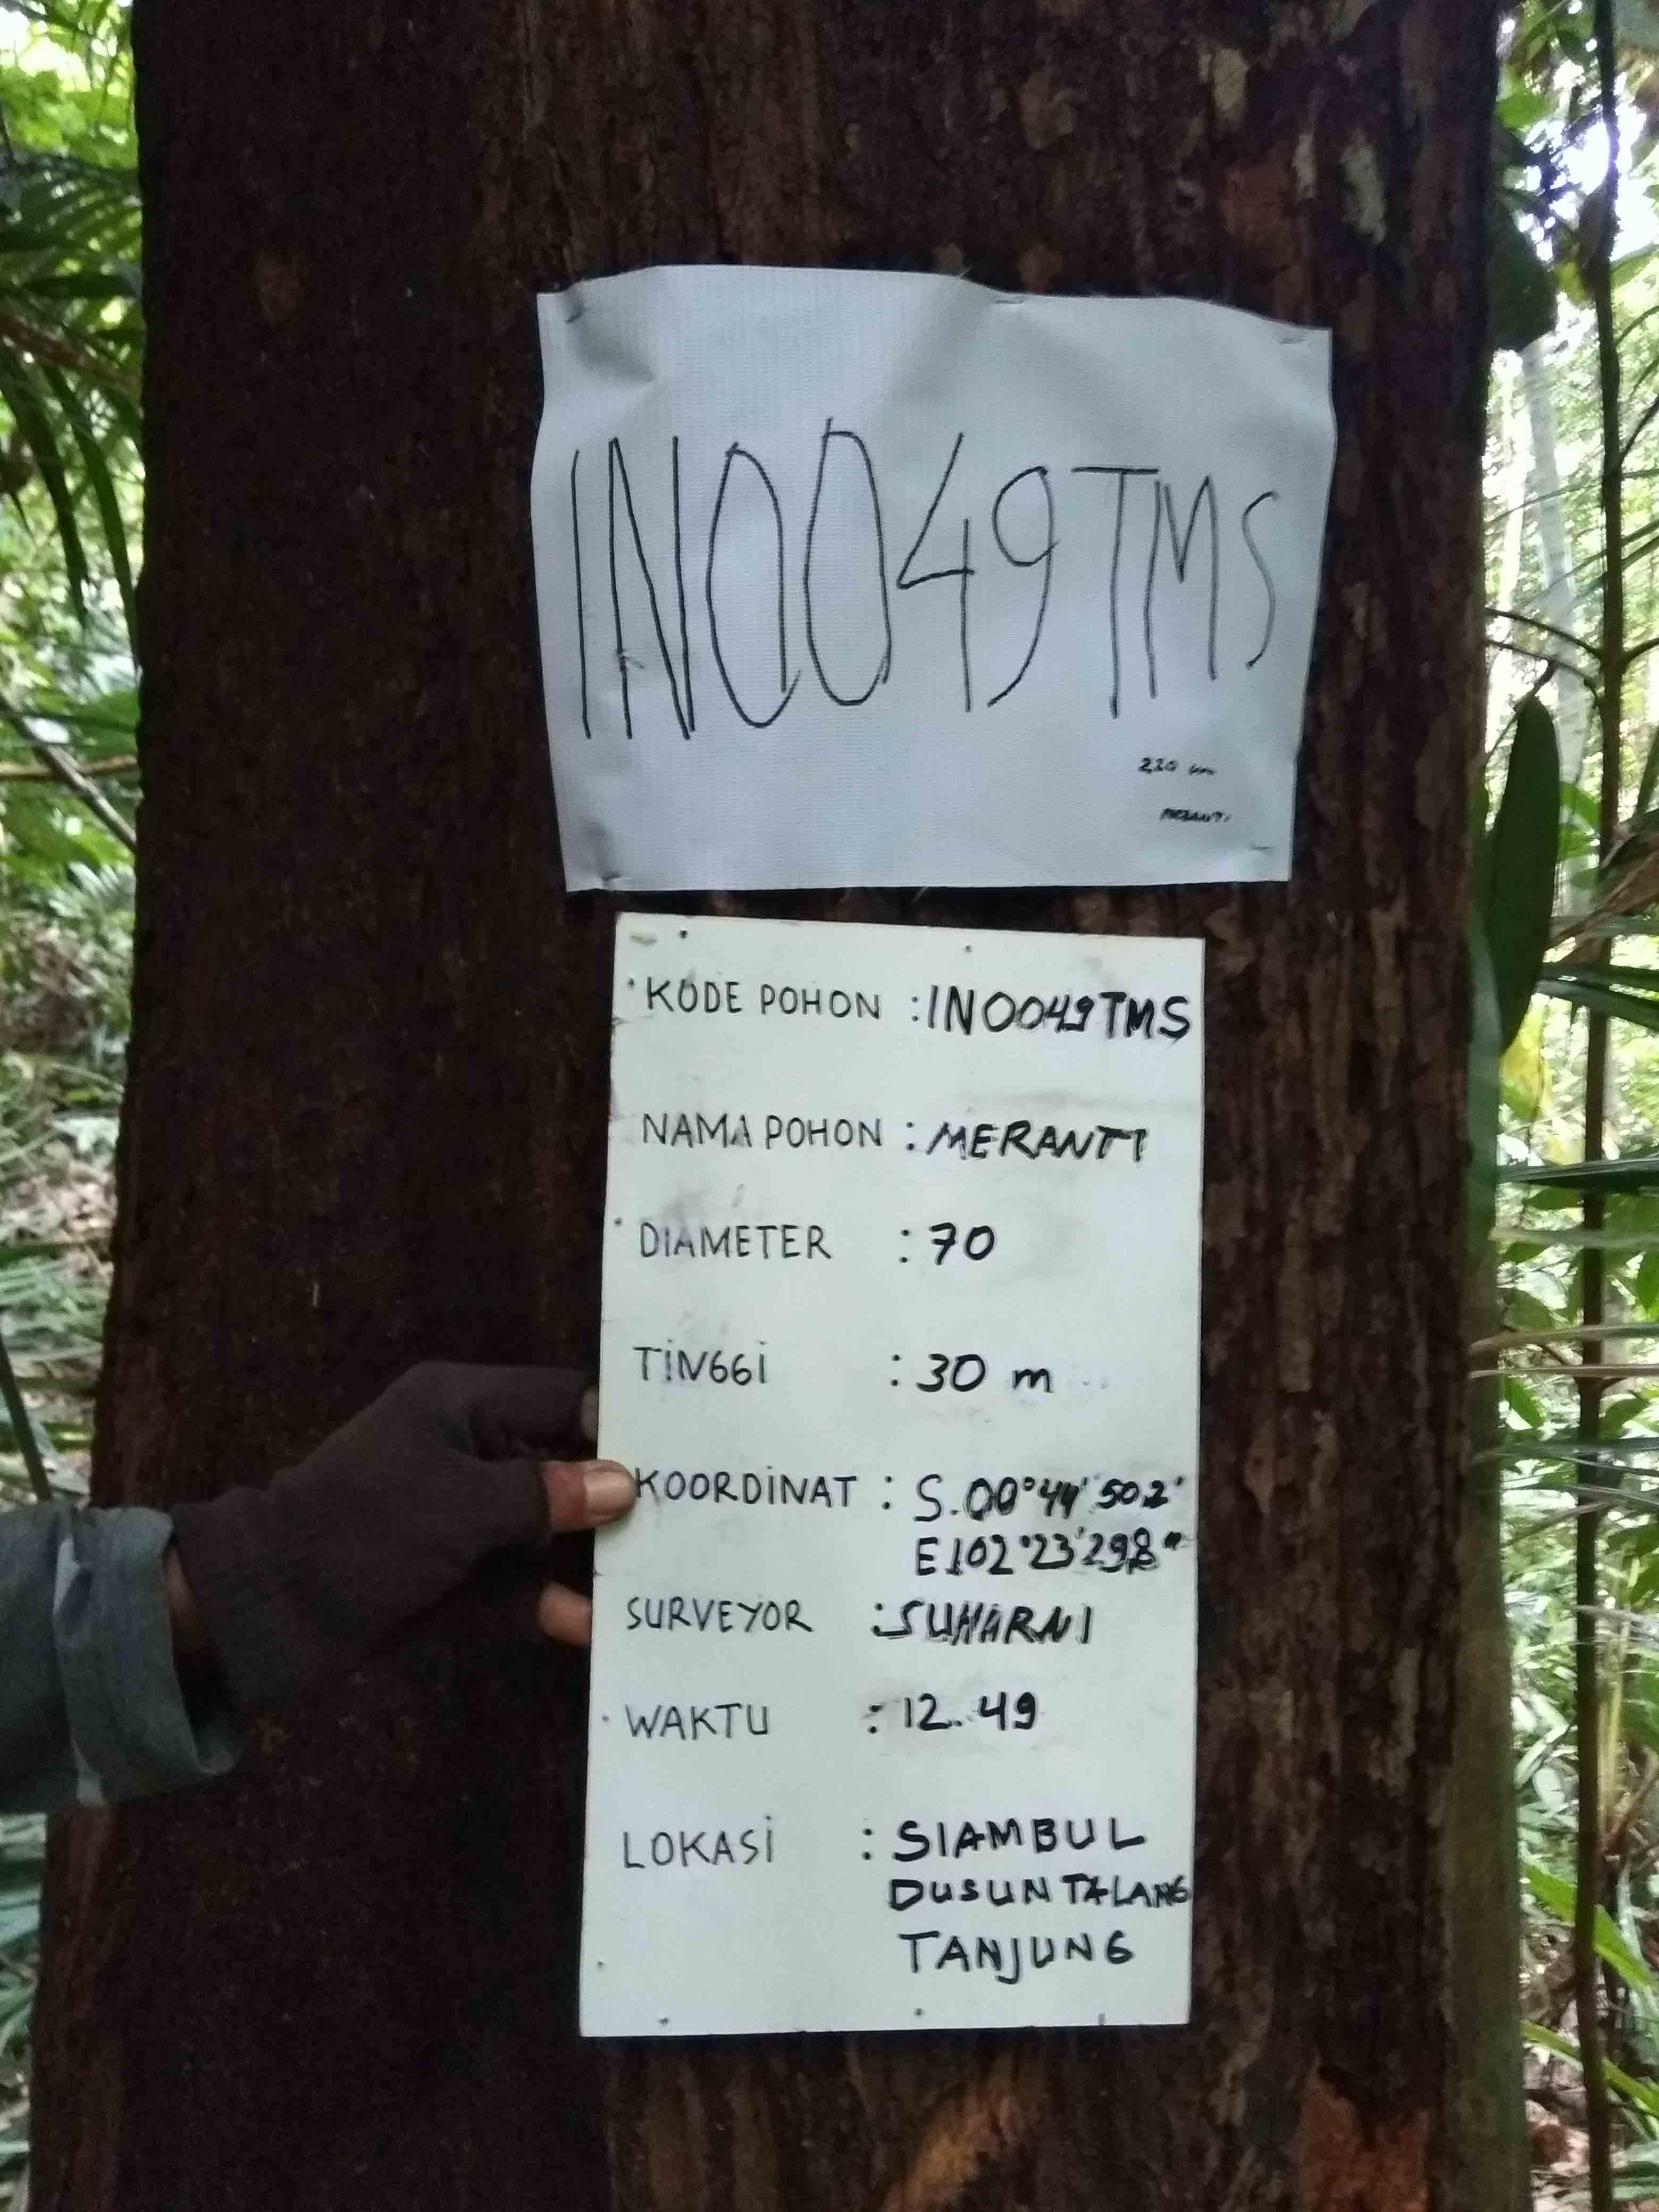 IN0049TMS
220 cm
MERANTI
KODE POHON : IN0049TMS
NAMA POHON : MERANTI
DIAMETER : 70
TINGGI : 30 m
KOORDINAT : S.00°44' 50.2'
E102°23'29.8"
SURVEYOR : SUHARNI
WAKTU : 12.49
LOKASI : SIAMBUL
DUSUN TALANG
TANJUNG